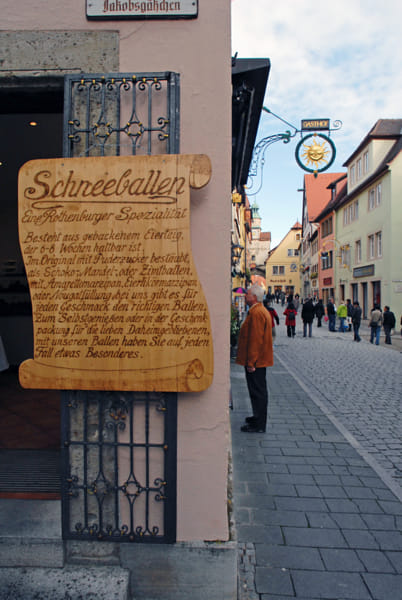 Jakobsgäßchen
GASTHOF
Schneeballen
Eine Rothenburger Spezialität
Besteht aus gebackenem Eierteig,
der 6-8 Wochen haltbar ist.
Im Original mit Puderzucker bestäubt,
als Schoko, Mandel, oder Zimtballen,
mit Amarettomarzipan, Eierlikörmarzipan
oder Nougatfüllung bei uns gibt es für
jeden Geschmack den richtigen Ballen.
Zum Selbstgenießen oder in der Geschenk
packung für die lieben Daheimgebliebenen,
mit unseren Ballen haben Sie auf jeden
Fall etwas Besonderes.